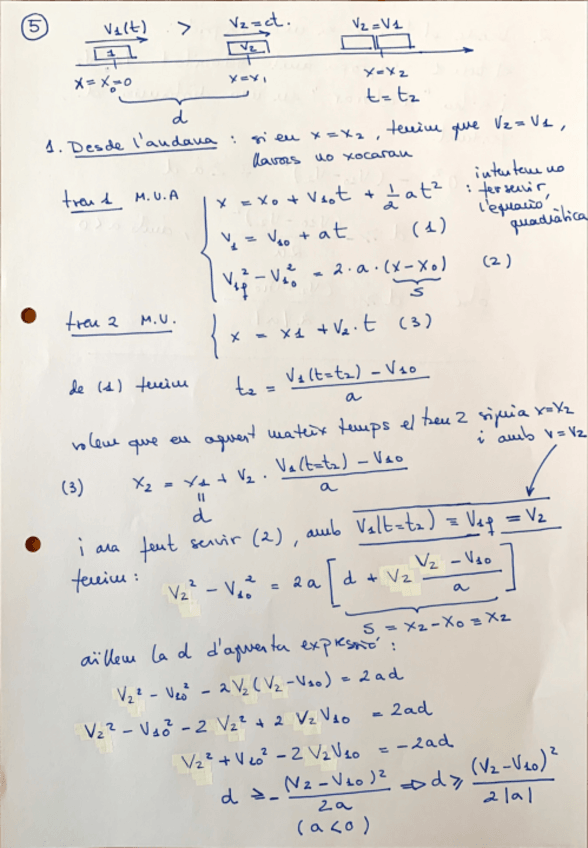 5
V₁(t) > V₂=ct. V₂=V₁
1 V₂
x=x₀=0 x=x₁ x=x₂
d t=t₂
1. Desde l'andana : si en x=x₂, tenim que V₂=V₁,
llavors no xocaran
tren 1 M.U.A x = x₀ + V₁₀t + 1/2 at² : intentem no
fer servir
l'equació
quadràtica
V₁ = V₁₀ + at (1)
V₁f² - V₁₀² = 2·a·(x-x₀) (2)
S
tren 2 M.U. x = x₁ + V₂·t (3)
de (1) tenim t₂ = (V₁(t=t₂) - V₁₀)/a
volem que en aquest mateix temps el tren 2 siguia x=x₂
i amb v=v₂
(3) x₂ = x₁ + V₂ · (V₁(t=t₂) - V₁₀)/a
=
d
i ara fent servir (2), amb V₁(t=t₂) ≡ V₁f = V₂
tenim :
V₂² - V₁₀² = 2a [d + V₂ (V₂ - V₁₀)/a]
S = x₂-x₀ ≡ x₂
aïllem la d d'aquesta expressió :
V₂² - V₁₀² - 2V₂(V₂-V₁₀) = 2ad
V₂² - V₁₀² - 2V₂² + 2V₂V₁₀ = 2ad
V₂² + V₁₀² - 2V₂V₁₀ = -2ad
d ≥ - (V₂ - V₁₀)²/2a ⇒ d ≥ (V₂-V₁₀)²/2|a|
(a<0)